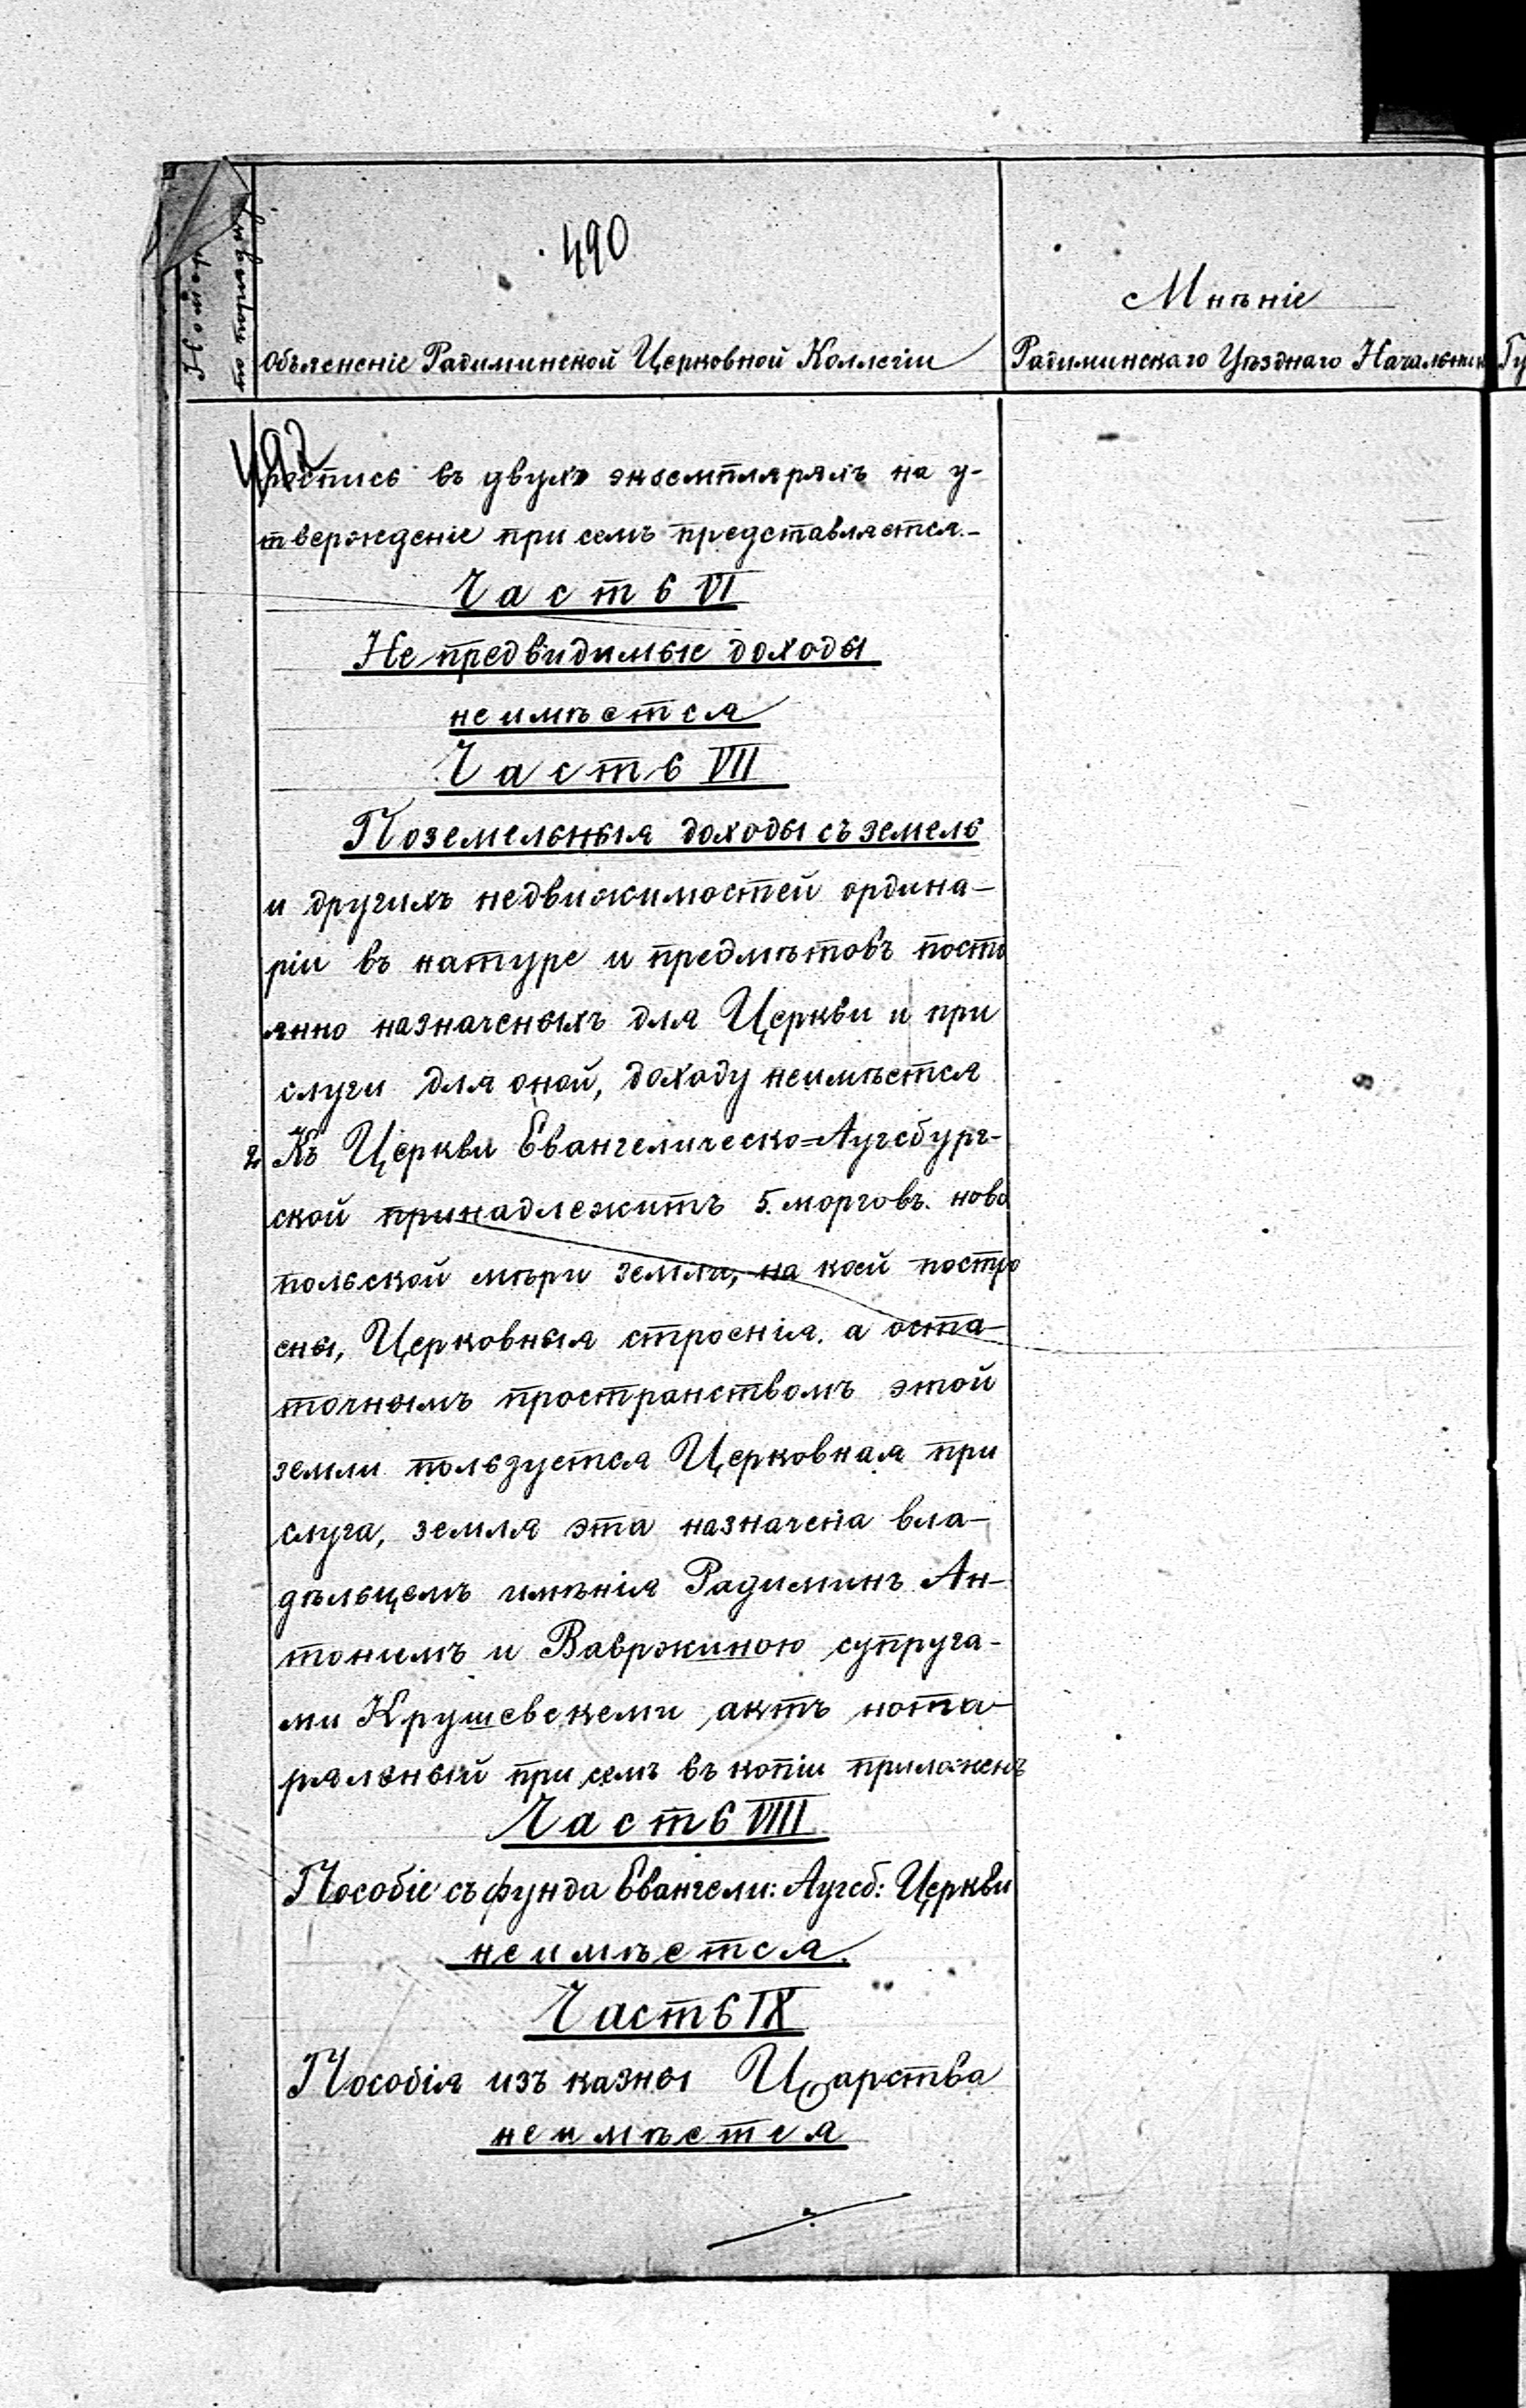 490
Мнѣніе
Объясненіе Радиминской Церковной Коллегіи
Радиминскаго Уѣзднаго Начальник
492
роспись въ двухъ экземплярахъ на у-
тверожденіе при семъ представляется.-
Часть VI
Не предвидимые доходы
неимѣется
Часть VII
Поземельныя доходы съ земель
и другихъ недвижимостей ордина-
ріи въ натуре и предмѣтовъ посто
янно назначеныхъ для Церкви и при
слуги для оной, доходу неимѣется
2 Къ Церкви Евангелическо=Аугсбург-
ской принадлежитъ 5. морговъ. ново
польской мѣри земли, на коей постро
ены, Церковныя строенія. а оста-
точнымъ пространствомъ этой
земли пользуется Церковная при
слуга, земля эта назначена вла-
дѣльцемъ имѣнія Радиминъ Ан-
тонимъ и Вавржиною супруга-
ми Крушевскеми актъ нота-
ряльный при семъ въ копіи приложенъ
Часть VIII
Пособіе съ фунда Евангели: Аугсб: Церкви
неимѣется.
Часть IX
Пособія изъ казны Царства
неимѣется